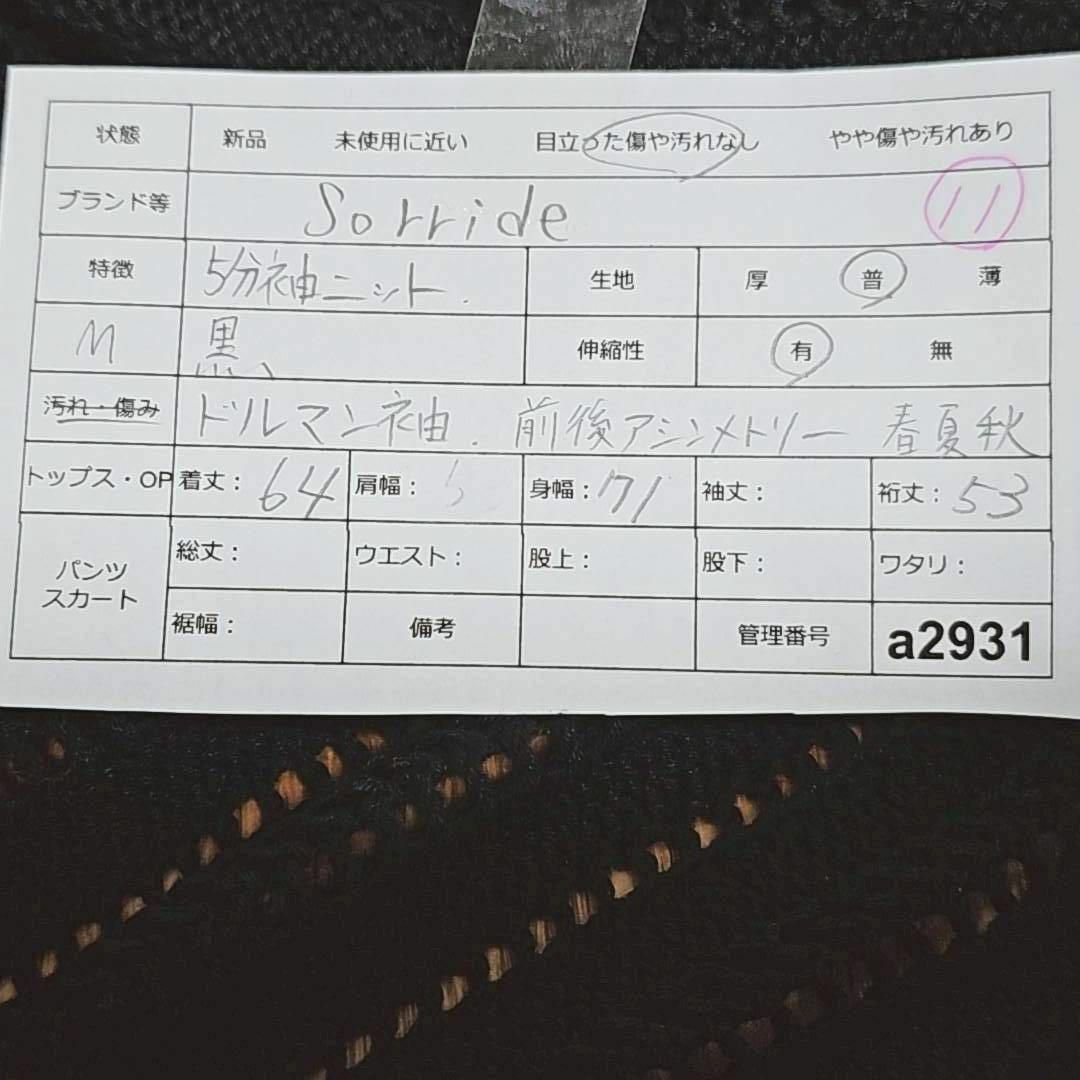 状態 新品 未使用に近い 目立った傷や汚れなし やや傷や汚れあり
ブランド等 Sorride 11
特徴 5分袖ニット. 生地 厚 普 薄
M 黒 伸縮性 有 無
汚れ・傷み ドルマン袖. 前後アシンメトリー 春夏秋
トップス・OP 着丈: 64 肩幅: 身幅: 71 袖丈: 裄丈: 53
パンツ スカート 総丈: ウエスト: 股上: 股下: ワタリ:
裾幅: 備考 管理番号 a2931